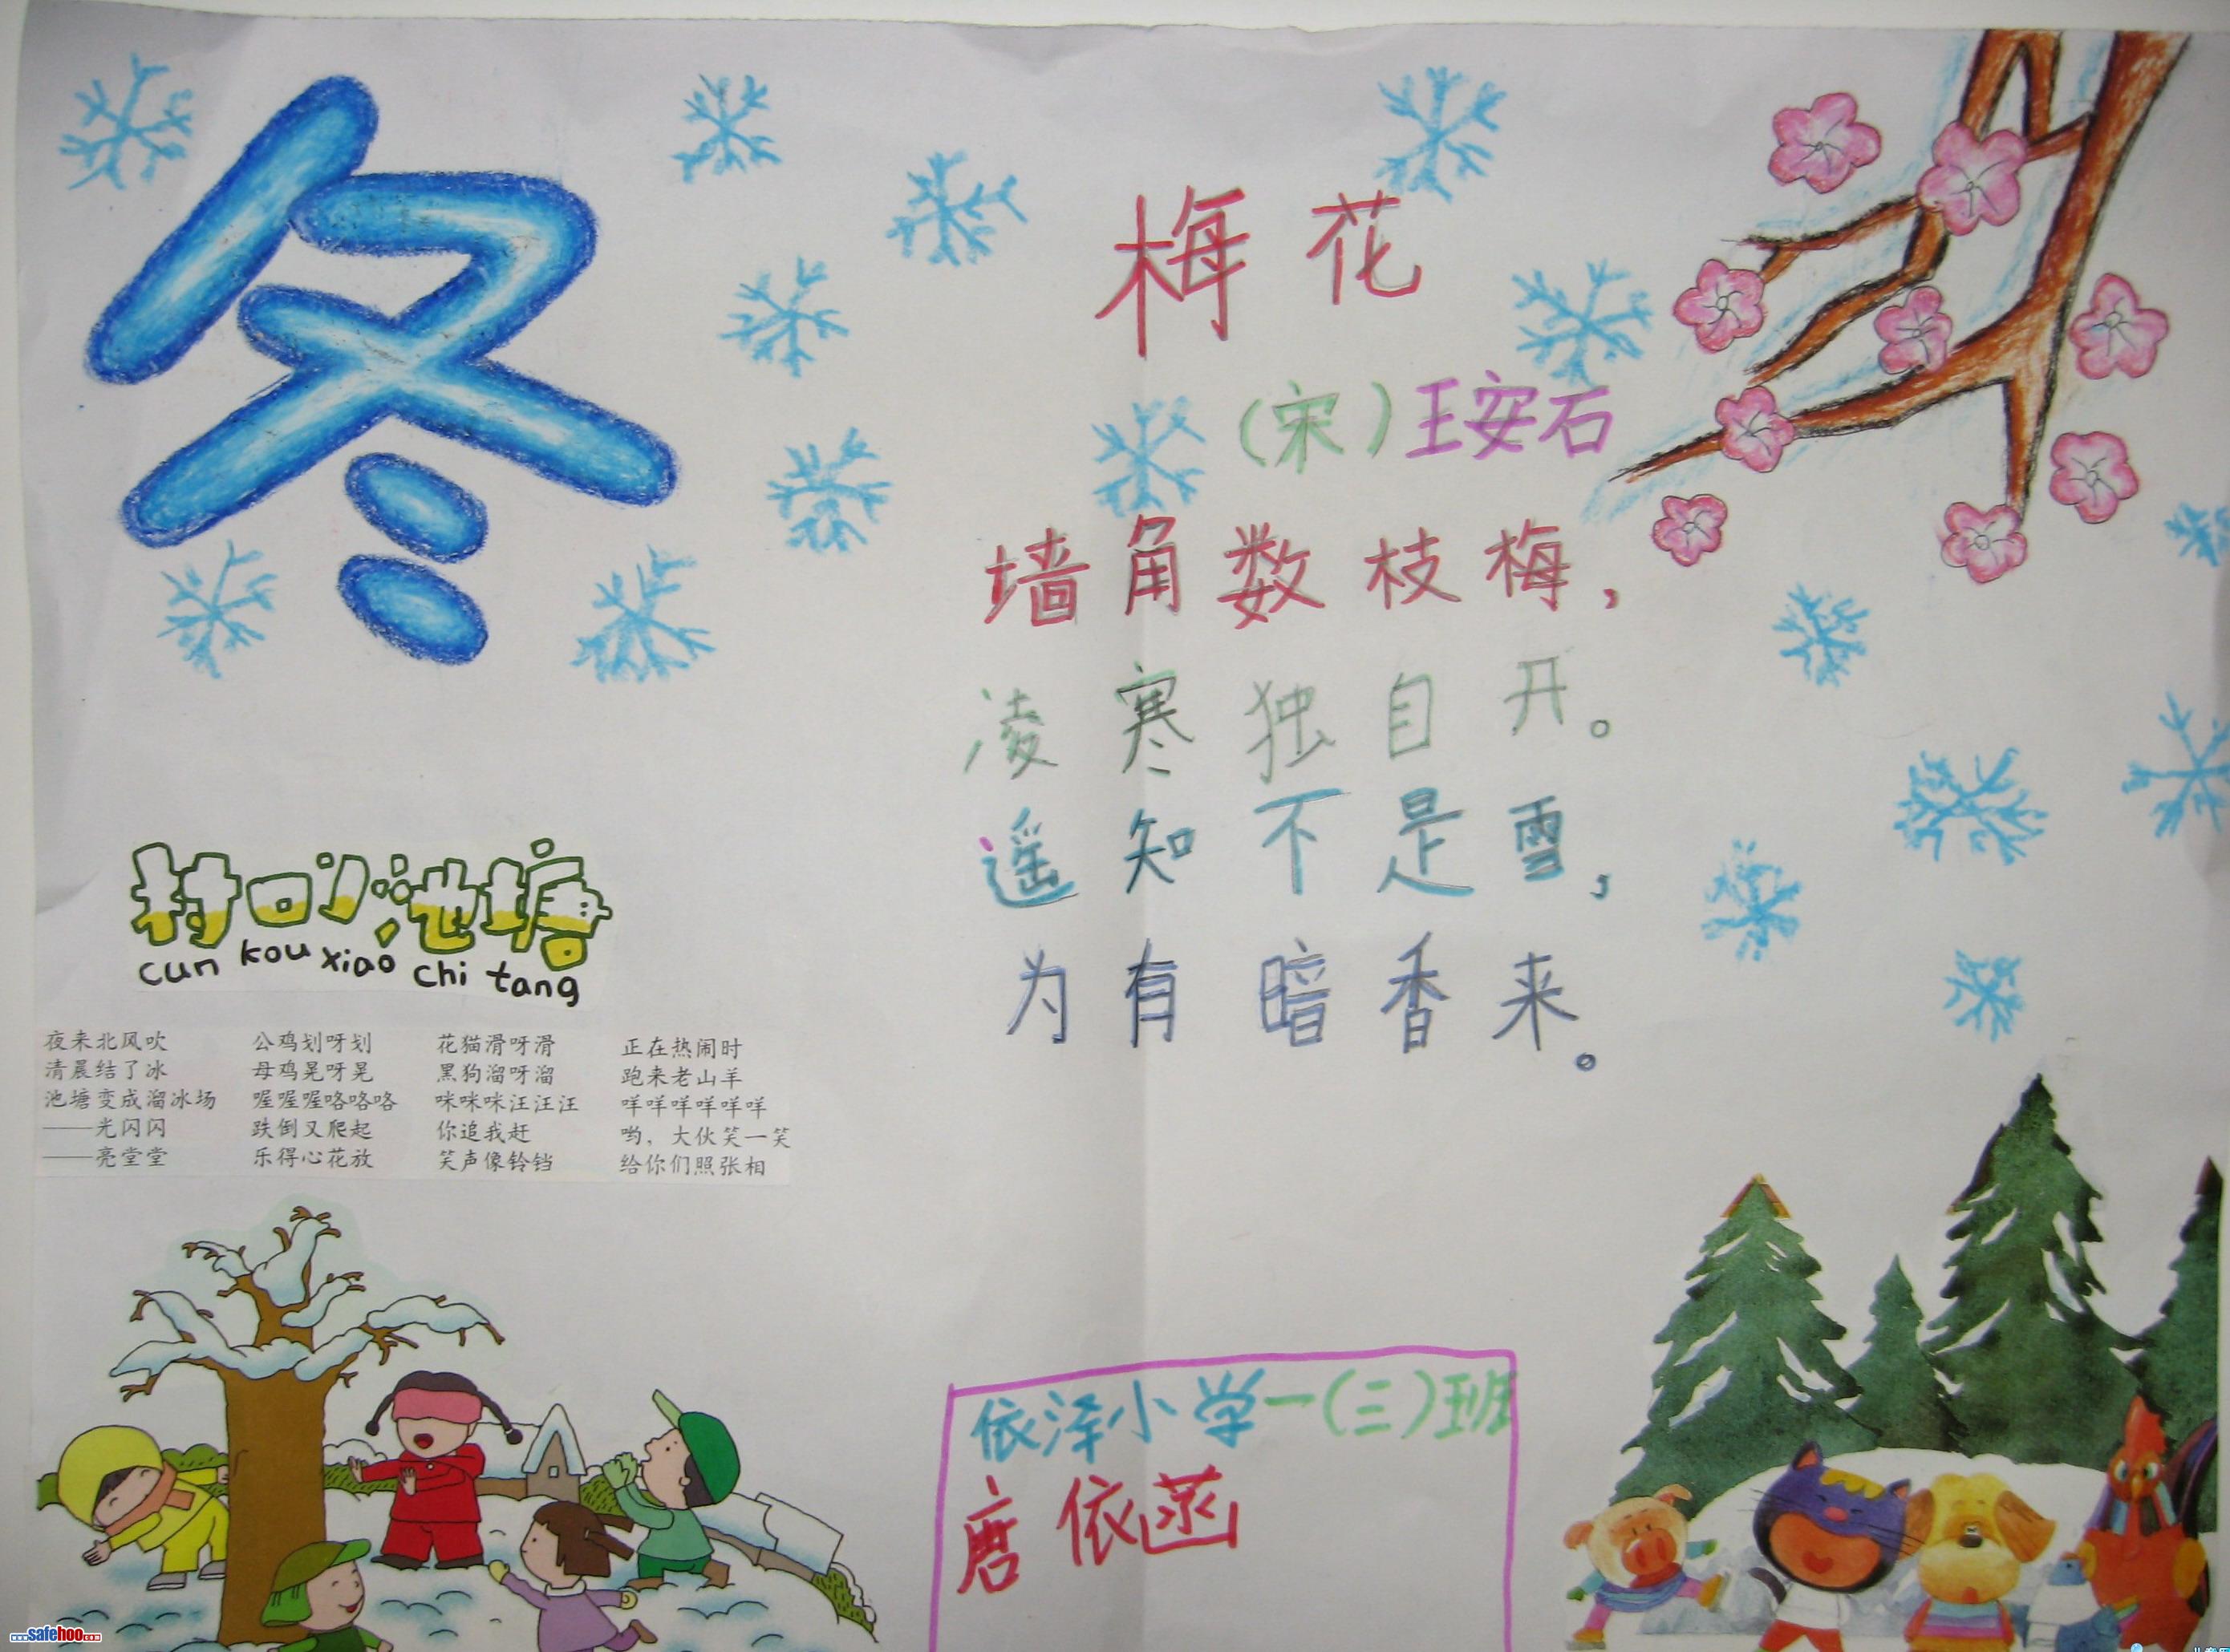 冬
梅花
（宋）王安石
墙角数枝梅，
凌寒独自开。
遥知不是雪，
为有暗香来。
村口小池塘
cun kou xiao chi tang
夜来北风吹
清晨结了冰
池塘变成溜冰场
——光闪闪
——亮堂堂
公鸡划呀划
母鸡晃呀晃
喔喔喔咯咯咯
跌倒又爬起
乐得心花放
花猫滑呀滑
黑狗溜呀溜
咪咪咪汪汪汪
你追我赶
笑声像铃铛
正在热闹时
跑来老山羊
咩咩咩咩咩咩
哟，大伙笑一笑
给你们照张相
依泽小学一（三）班
唐依菡
...safehoo.com